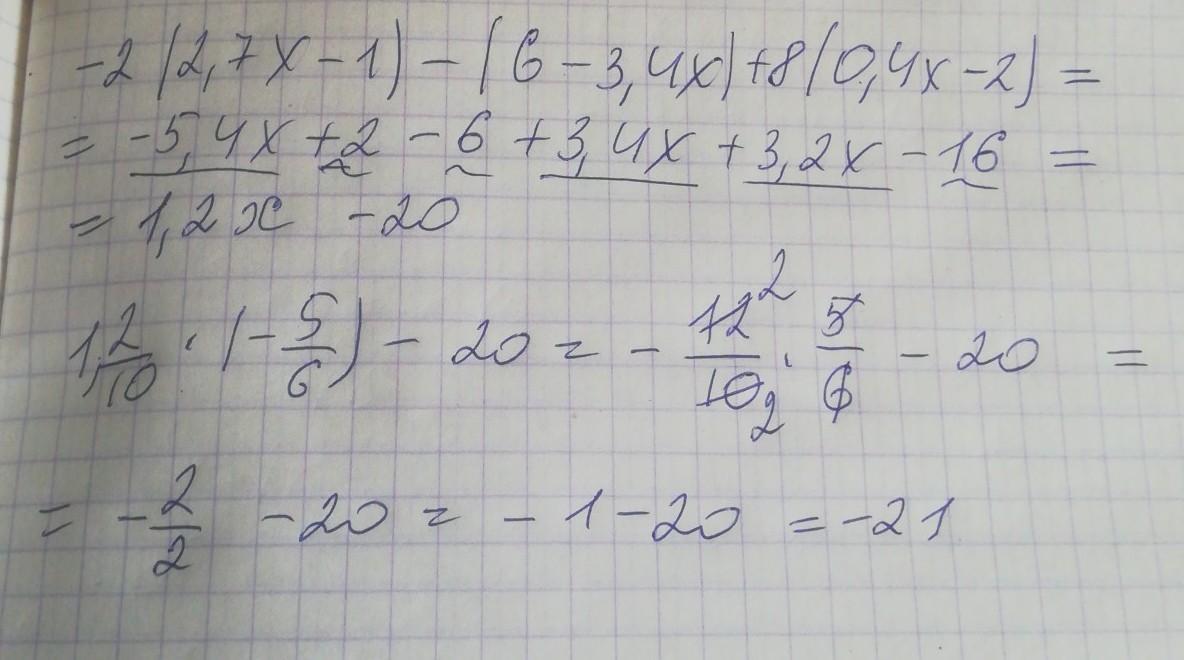 -2(2,7x-1)-(6-3,4x)+8(0,4x-2)=
= -5,4x +2 -6 +3,4x +3,2x -16 =
= 1,2x -20
1 2/10 · (-5/6) - 20 = - 12²/10₂ · 5/6 - 20 =
= - 2/2 - 20 = -1-20 = -21